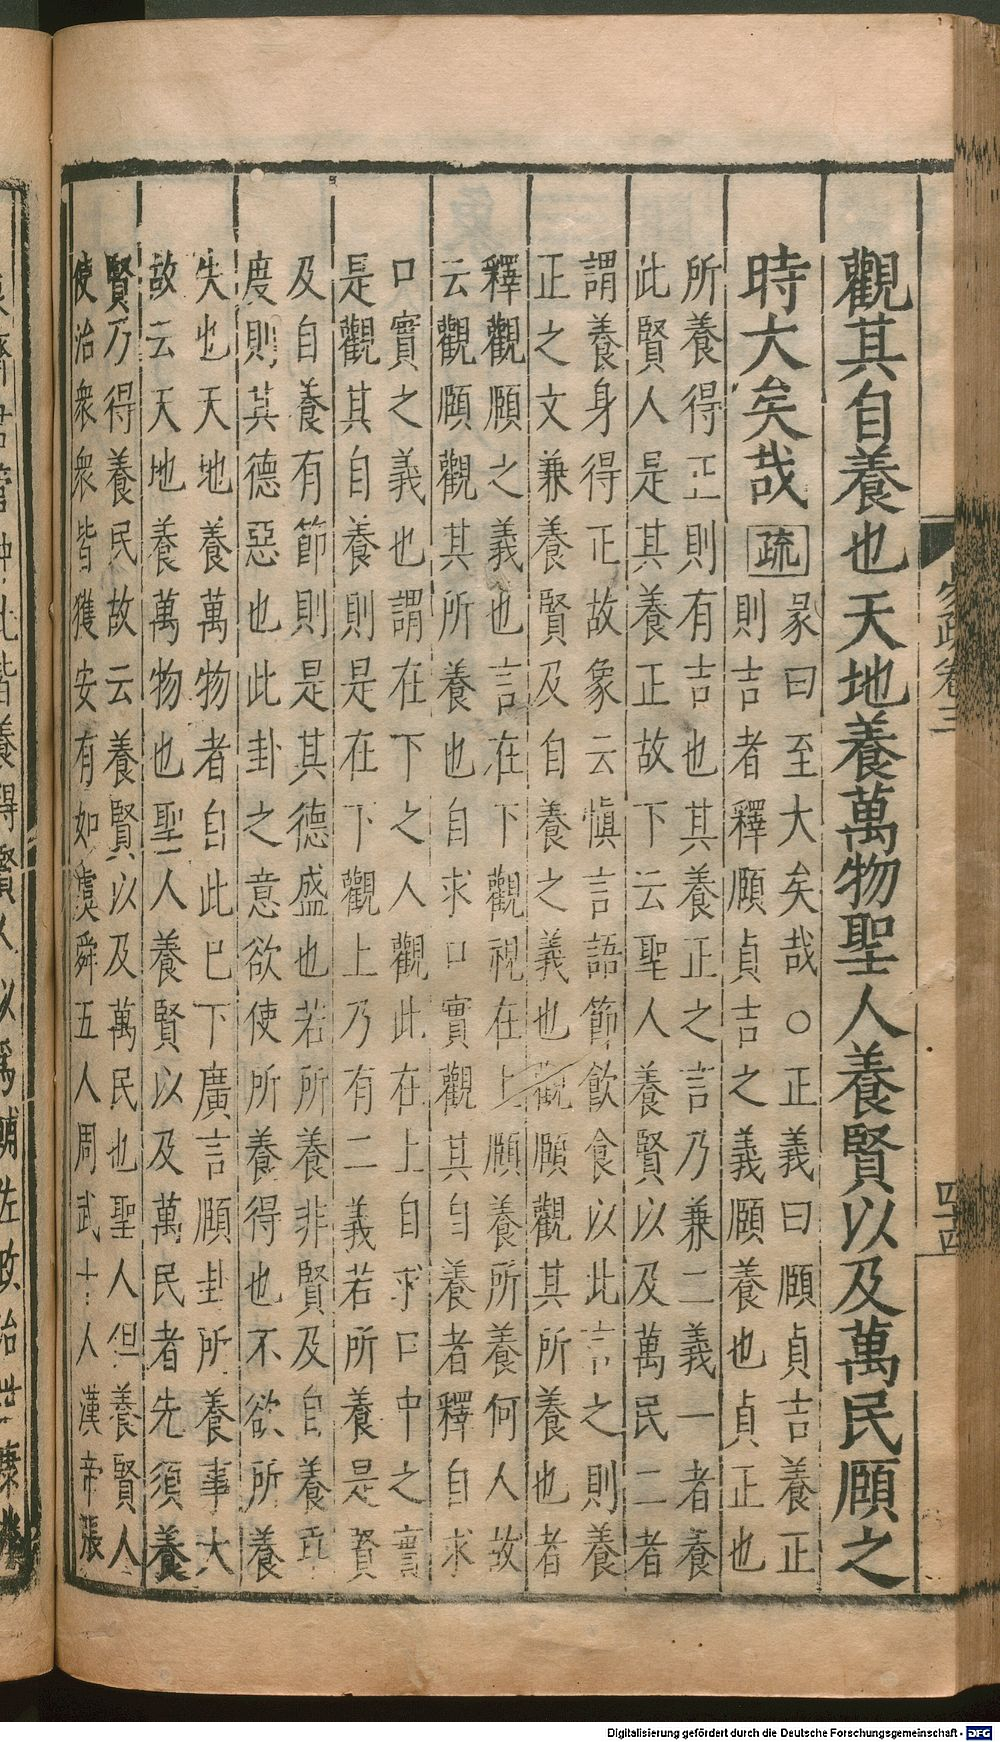 觀其自養也天地養萬物聖人養賢以及萬民頤之
時大矣哉
疏
彖曰至大矣哉○正義曰頤貞吉養正
則吉者釋頤貞吉之義頤養也貞正也
所養得正則有吉也其養正之言乃兼二義一者養
此賢人是其養正故下云聖人養賢以及萬民二者
謂養身得正故象云愼言語節飲食以此言之則養
正之文兼養賢及自養之義也觀頤觀其所養也者
釋觀頤之義也言在下觀視在上頤養所養何人故
云觀頤觀其所養也自求口實觀其自養者釋自求
口實之義也謂在下之人觀此在上自求口中之實
是觀其自養則是在下觀上乃有二義若所養是賢
及自養有節則是其德盛也若所養非賢及自養乖
度則其德惡也此卦之意欲使所養得也不欲所養
失也天地養萬物者自此已下廣言頤卦所養事大
故云天地養萬物也聖人養賢以及萬民者先須養
賢乃得養民故云養賢以及萬民也聖人但養賢人
使治衆衆皆獲安有如虞舜五人周武十人漢帝張
易疏卷三
四十四
Digitalisierung gefördert durch die Deutsche Forschungsgemeinschaft - DFG